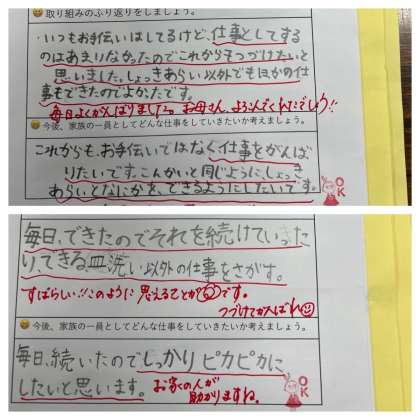 取り組みのふり返りをしましょう。
いつもお手伝いはしてるけど、仕事としてする
のはあまりなかったのでこれからもつづけたいと
思いました。しょっきあらい以外でもほかの仕
事もできたのでよかったです。
毎日よくがんばりました。お母さん、よろこんでくれたでしょう!!
今後、家族の一員としてどんな仕事をしていきたいか考えましょう。
これからも、お手伝いではなく仕事をがんば
りたいです。こんかいと同じように、しょっき
あらいとなにかを、できるようにしたいです。
OK
毎日、できたのでそれを続けていった
り、できる皿洗い以外の仕事をさがす。
すばらしい!!このように思えることが◎です。
つづけてがんばれ
今後、家族の一員としてどんな仕事をしていきたいか考えましょう。
毎日、続いたのでしっかりピカピカに
したいと思います。
お家の人が
助かりますね。
OK